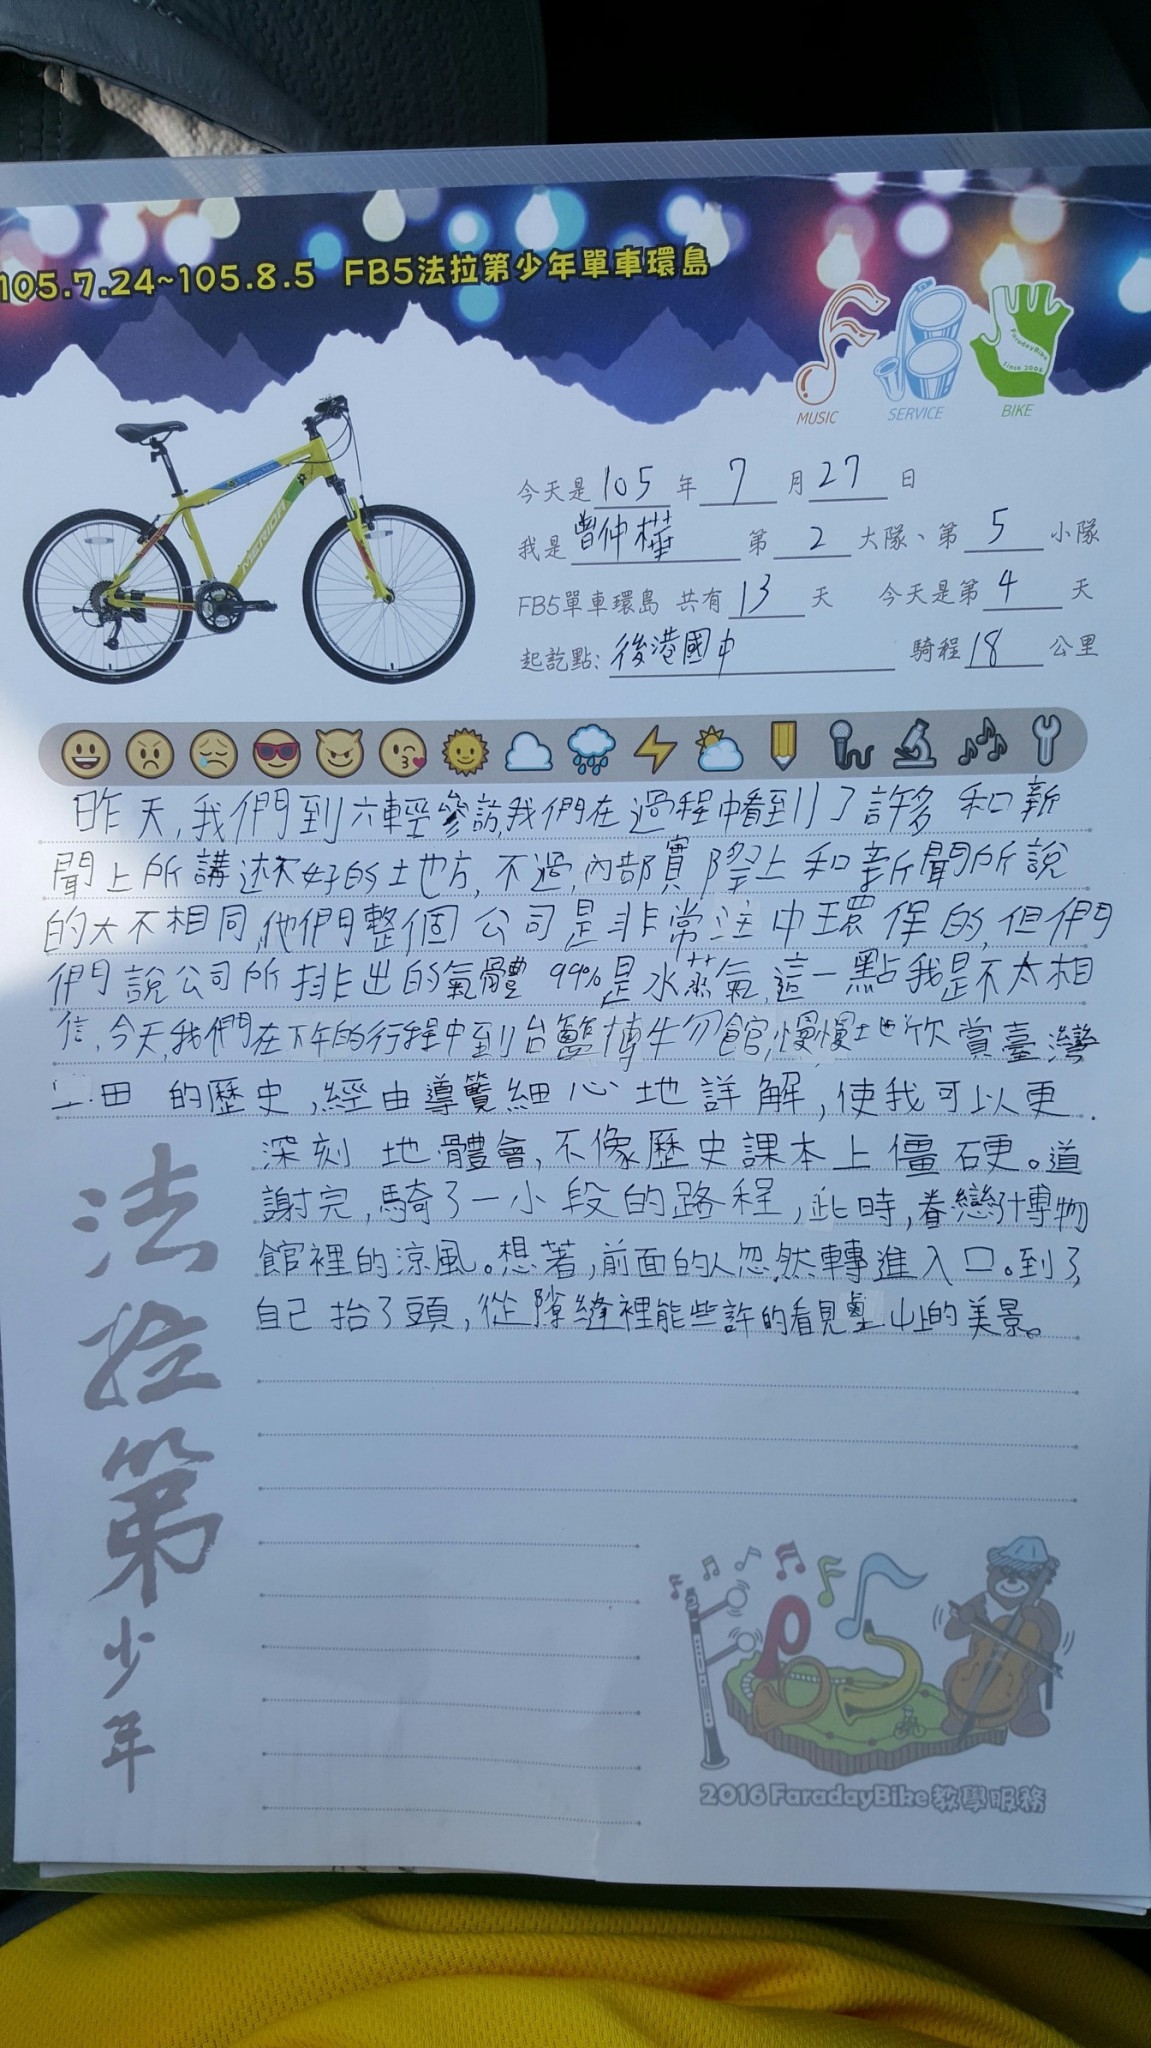 105.7.24~105.8.5 FB5法拉第少年單車環島
MUSIC SERVICE BIKE
FaradayBike
Since 2002
MERIDA
今天是 105 年 7 月 27 日
我是 曾仲樺 第 2 大隊、第 5 小隊
FB5單車環島 共有 13 天 今天是第 4 天
起訖點: 後港國中 騎程 18 公里
昨天,我們到六輕參訪,我們在過程中看到了許多 和新
聞上所講述不好的土地方,不過,內部實際上和新聞所說
的大不相同,他們整個公司是非常注中環保的,但們
們說公司所排出的氣體 99%是水蒸氣,這一點我是不太相
信,今天,我們在下午的行程中到台鹽博物館,慢慢地欣賞臺灣
田 的歷史,經由導覽細心地詳解,使我可以更
深刻地體會,不像歷史課本上僵硬。道
謝完,騎了一小段的路程,此時,眷戀博物
館裡的涼風。想著,前面的人忽然轉進入口。到了
自己抬了頭,從隙縫裡能些許的看見鹽山上的美景。
法拉第少年
2016 FaradayBike 教學服務